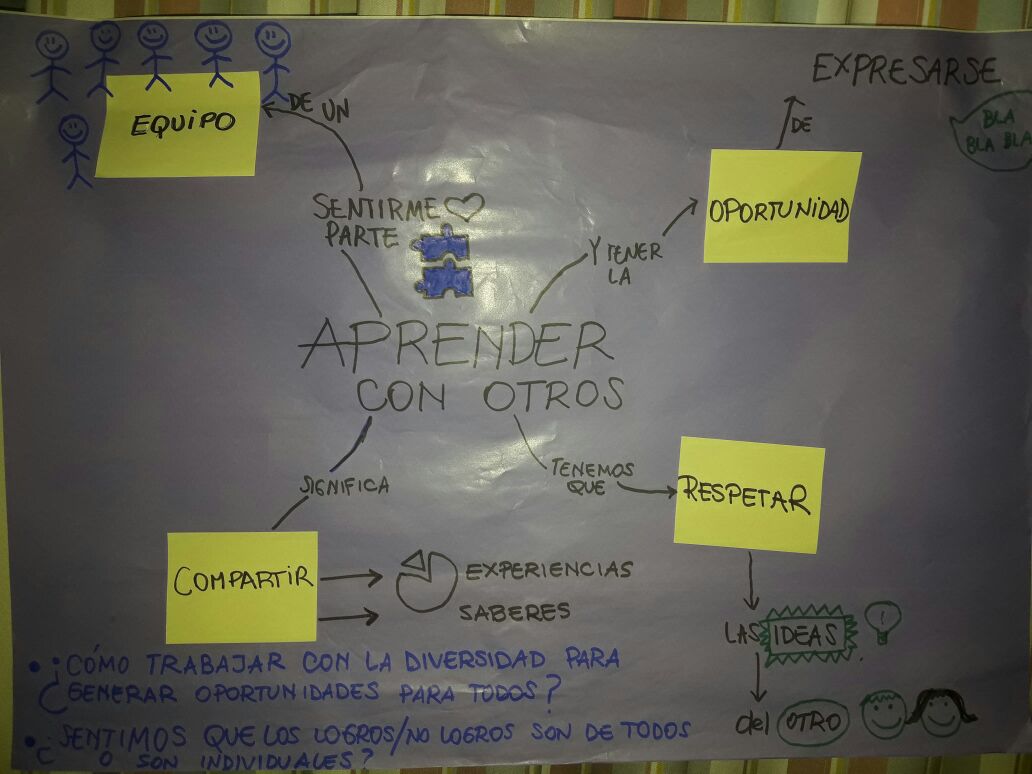 EXPRESARSE
DE UN
EQUIPO
DE
BLA
BLA BLA
SENTIRME
PARTE
OPORTUNIDAD
Y TENER
LA
APRENDER
CON OTROS
SIGNIFICA
TENEMOS
QUE
RESPETAR
COMPARTIR
EXPERIENCIAS
SABERES
LAS IDEAS
del OTRO
• ¿CÓMO TRABAJAR CON LA DIVERSIDAD PARA
GENERAR OPORTUNIDADES PARA TODOS?
• ¿SENTIMOS QUE LOS LOGROS/NO LOGROS SON DE TODOS
O SON INDIVIDUALES?